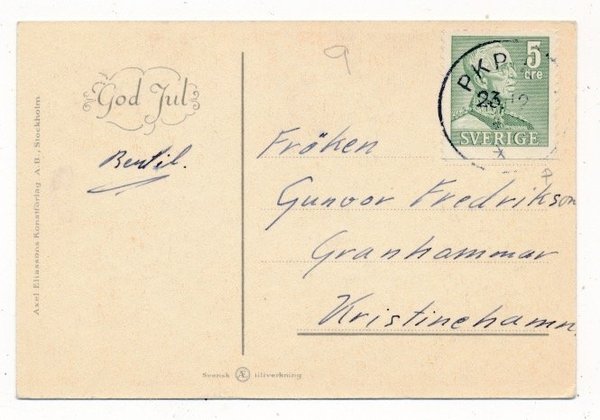 God Jul
Bertil.
Axel Eliassons Konstförlag A.B., Stockholm
Svensk Æ tillverkning
5
öre
SVERIGE
PKP
23 12
Fröken
Gunvor Fredrikson
Granhammar
Kristinehamn